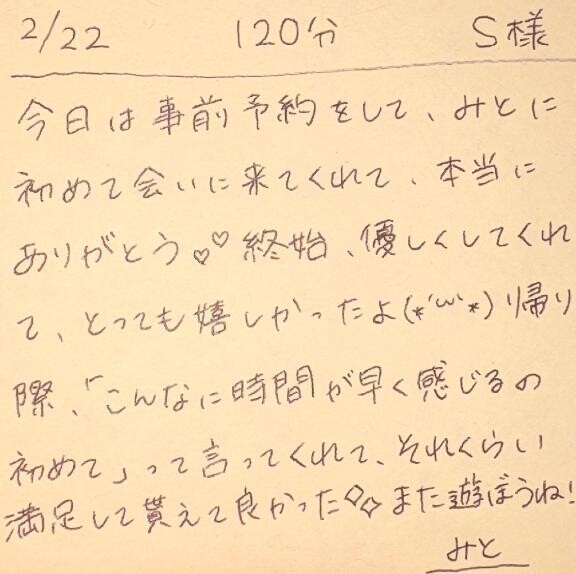 2/22 120分 S様
今日は事前予約をして、みとに
初めて会いに来てくれて、本当に
ありがとう♡♡終始、優しくしてくれ
て、とっても嬉しかったよ(*´ω`*)帰り
際、「こんなに時間が早く感じるの
初めて」って言ってくれて、それくらい
満足して貰えて良かった✧✧また遊ぼうね!
みと